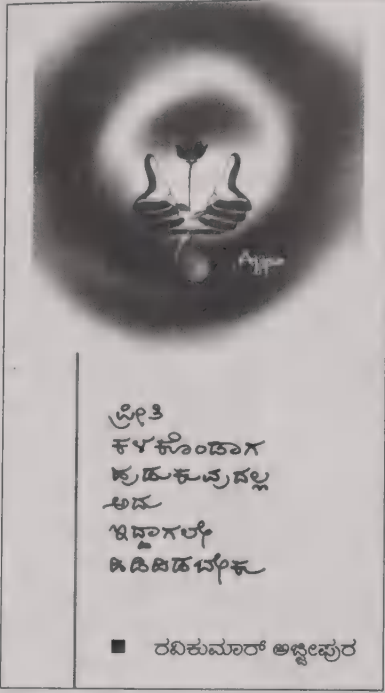 ಪ್ರೀತಿ
ಕಳಕೊಂಡಾಗ
ಹುಡುಕುವುದಲ್ಲ
ಅದು
ಇದ್ದಾಗಲೇ
ಹಿಡಿದಿಡಬೇಕು
■ ರವಿಕುಮಾರ್ ಅಜ್ಜೀಪುರ